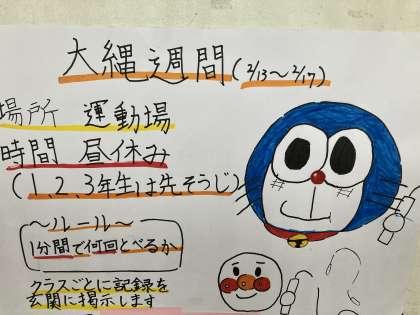 大縄週間(2/13～2/17)
場所 運動場
時間 昼休み
(1、2、3年生は先そうじ)
～ルール～
1分間で何回とべるか
クラスごとに記録を
玄関に掲示します